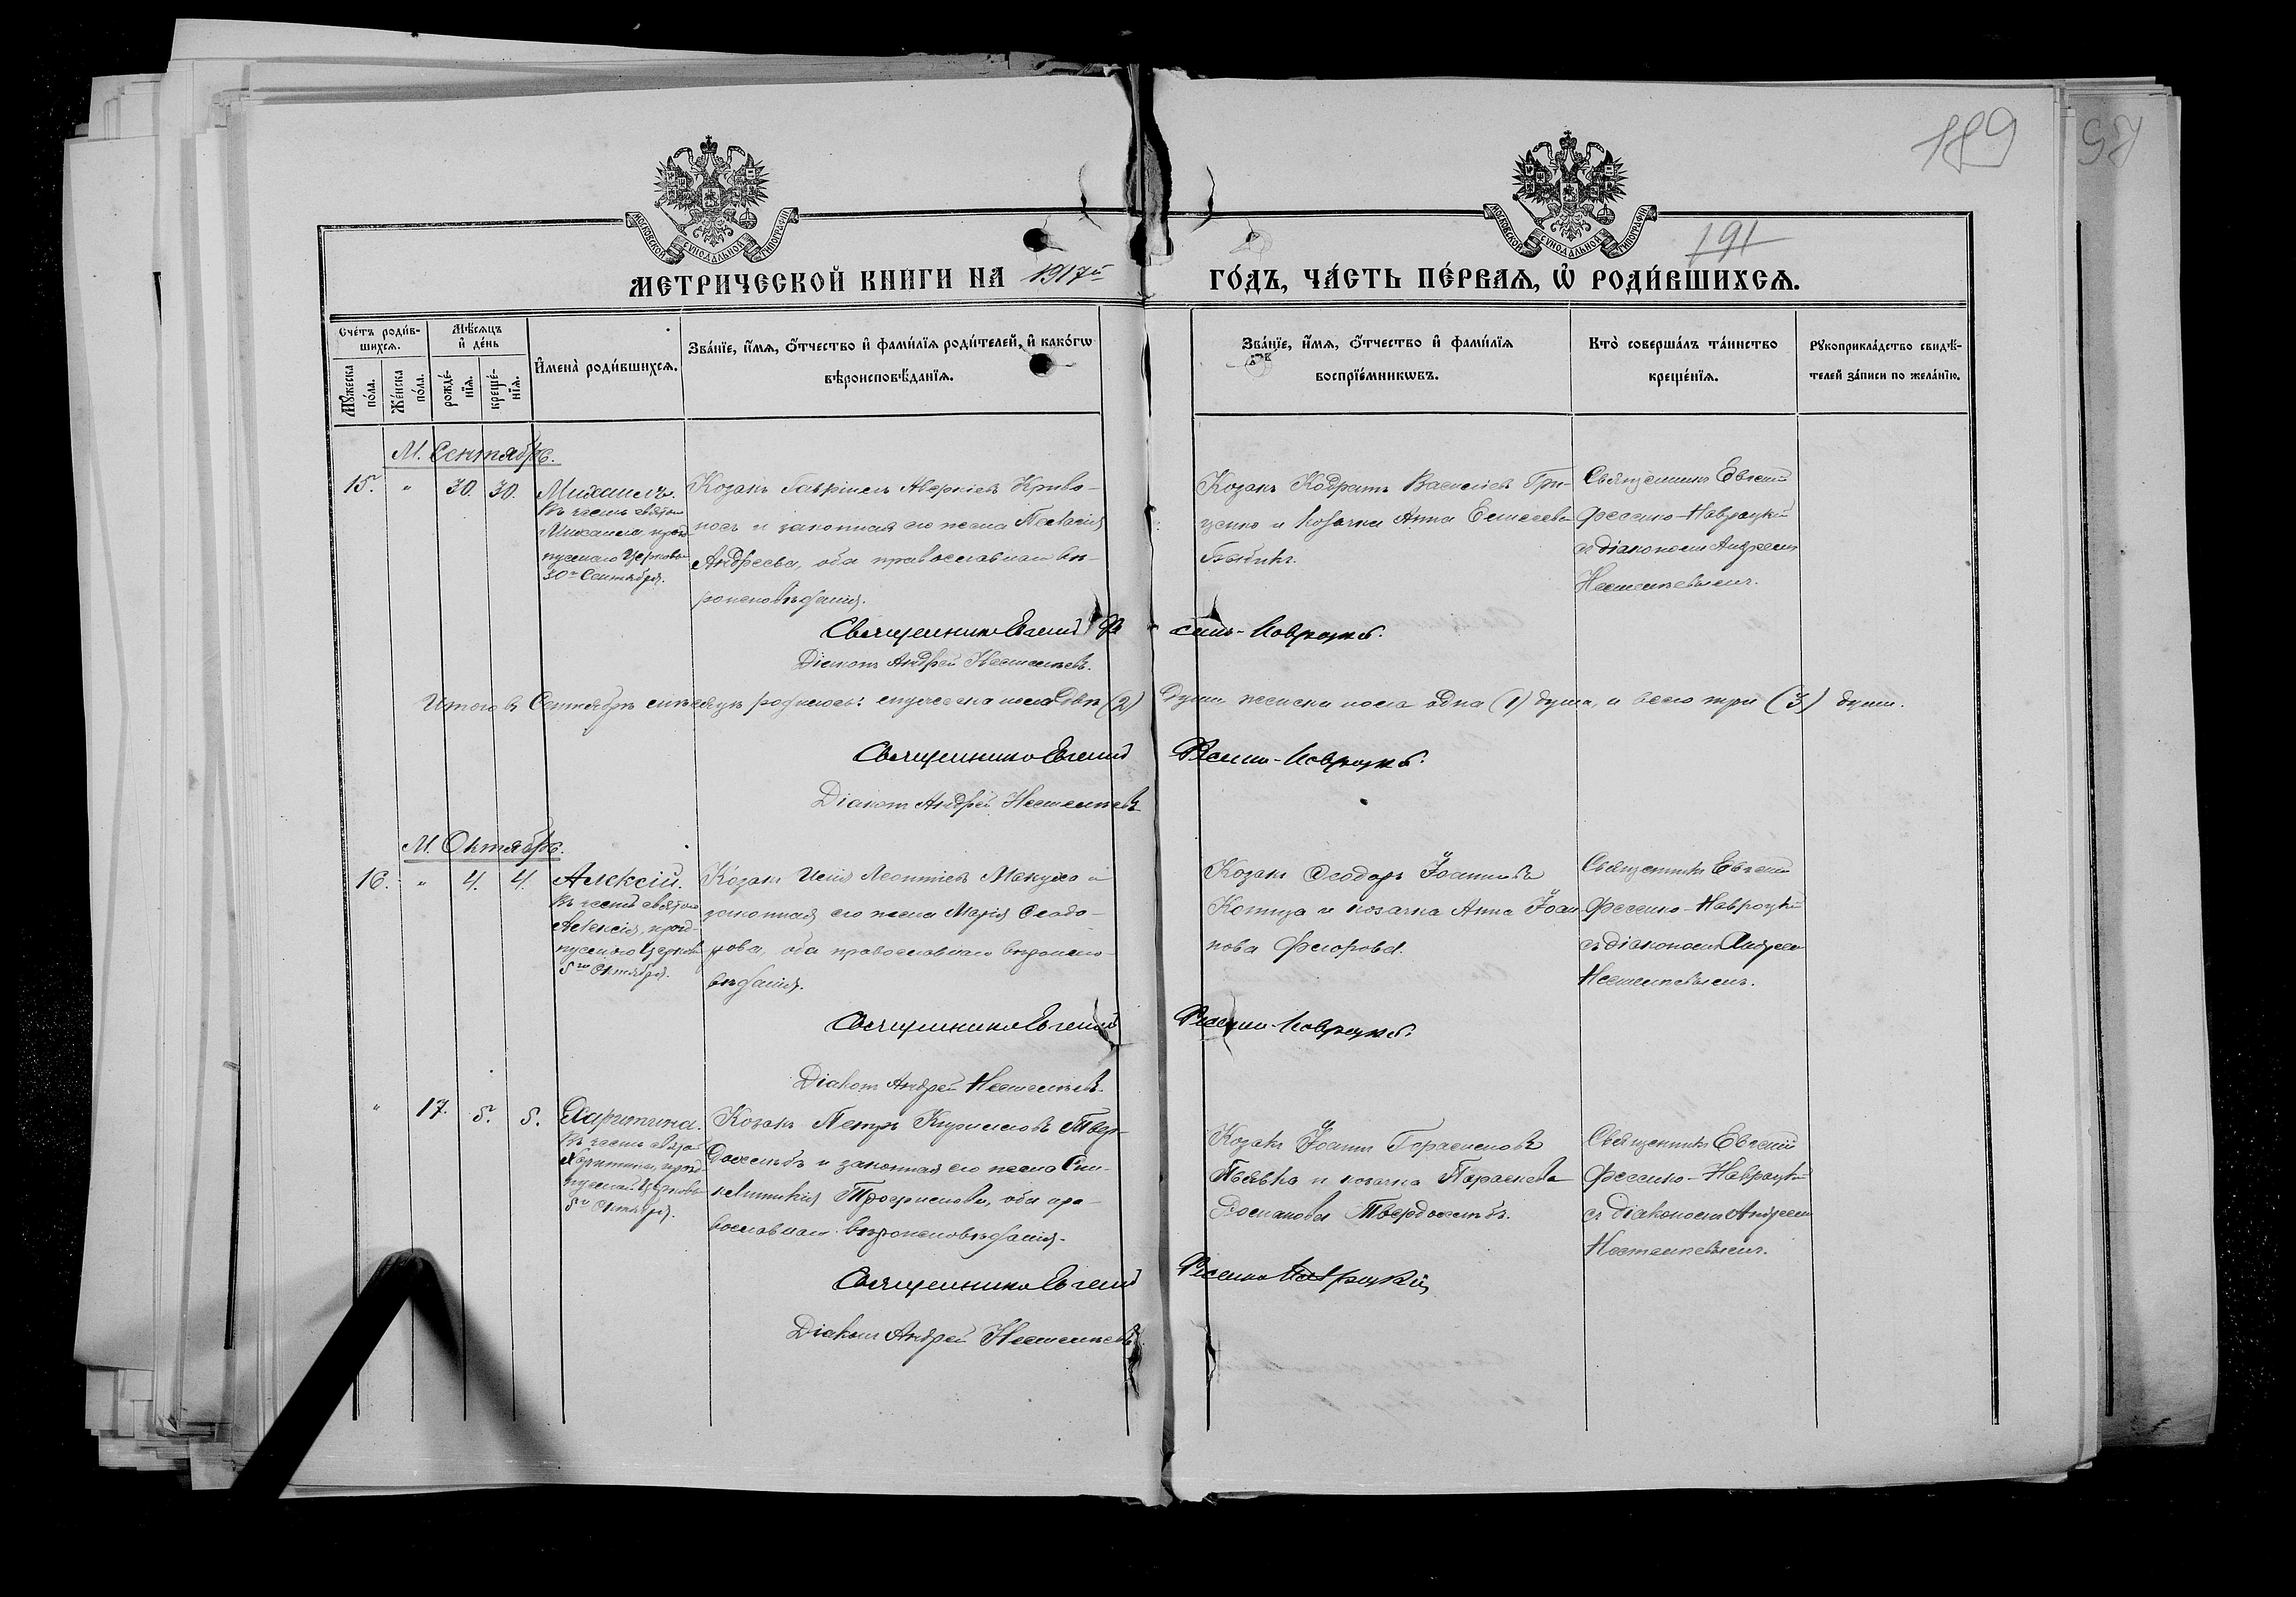 189
191
МОСКОВСКОЙ СѴНОДАЛЬНОЙ ТИПОГРАФІИ
МОСКОВСКОЙ СѴНОДАЛЬНОЙ ТИПОГРАФІИ
МЕТРИЧЕСКОЙ КНИГИ НА 1917й ГО́ДЪ, ЧА́СТЬ ПЕ́РВАЯ, Ѡ҆ РОДИ́ВШИХСЯ.
Сче́тъ роди́в-
шихсѧ.
Мꙋ́жеска по́ла.
Же́нска по́ла.
Мѣ́сѧцъ
и҆ де́нь
рожде́-
нїѧ.
креще́-
нїѧ.
И҆мена̀ роди́вшихсѧ.
Зва́нїе, и҆́мѧ, ѻ҆́тчество и҆ фами́лїѧ роди́телей, и҆ како́гѡ
вѣроисповѣ́данїѧ.
Зва́нїе, и҆́мѧ, ѻ҆́тчество и҆ фами́лїѧ
воспрїе́мникѡвъ.
Кто̀ соверша́лъ та́инство
креще́нїѧ.
Рꙋкоприкла́дство свидѣ́-
телей за́писи по жела́нїю.
М. Сентябрь.
15. " 30. 30. Михаилъ.
Въ честь святого
Михаила, празд-
нуемаго Церковью
30го Сентября.
Козакъ Гавріилъ Аверкіевъ Криво-
носъ и законная его жена
Андреева, оба православнаго вѣ-
роисповѣданія.
Козакъ Кодратъ Василіевъ Гри-
ценко и козачка Анна Елисеева
Священникъ Евгеній
Фесенко-Навроцкій
съ діакономъ Андреемъ
Священникъ Евгеній Фе сенко-Навроцкій.
Діаконъ Андрей
Итого въ Сентябрѣ мѣсяцѣ родилось: мужеска пола двѣ (2) души женска пола одна (1) душа, а всего три (3) души.
Священникъ Евгеній Фесенко-Навроцкій.
Діаконъ Андрей
М. Октябрь.
16. " 4. 4. Алексій.
Въ честь святого
Алексія, празд-
нуемаго Церковью
5го Октября.
Козакъ Леонтіевъ и
законная его жена Марія Ѳеодо-
рова, оба православнаго вѣроиспо-
вѣданія.
Козакъ Ѳеодоръ Іоанновъ
и козачка Анна Іоан-
нова
Священникъ Евгеній
Фесенко-Навроцкій
съ діакономъ Андреемъ
Священникъ Евгеній Фесенко-Навроцкій.
Діаконъ Андрей
" 17. 5. 5. Харитина.
Въ честь святой
Харитины, празд-
нуемой Церковью
5го Октября.
Козакъ Петръ Кирилловъ Твер-
дохлѣбъ и законная его жена
Трофимова, оба пра-
вославнаго вѣроисповѣданія.
Козакъ Іоаннъ Герасимовъ
и козачка Параскева
Романова Твердохлѣбъ.
Священникъ Евгеній
Фесенко-Навроцкій
съ діакономъ Андреемъ
Священникъ Евгеній Фесенко Навроцкій
Діаконъ Андрей